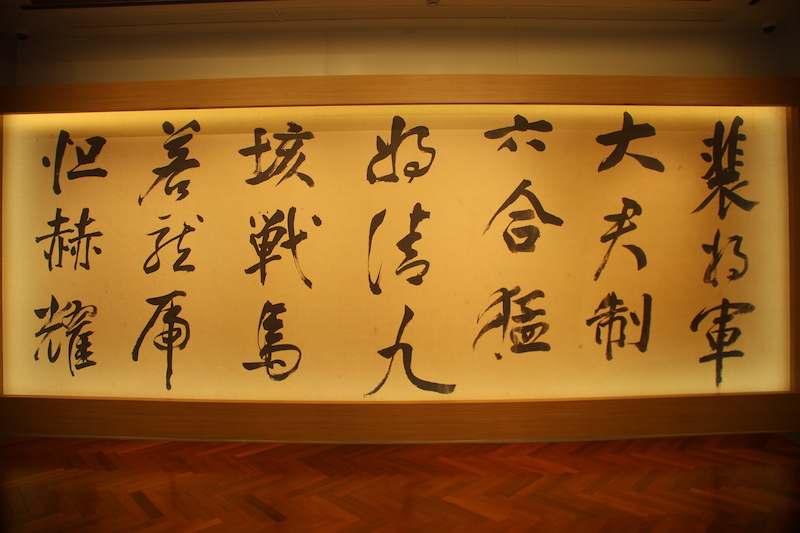 裴将軍
大君制
六合猛
将清九
垓戦馬
若龍虎
怛赫耀